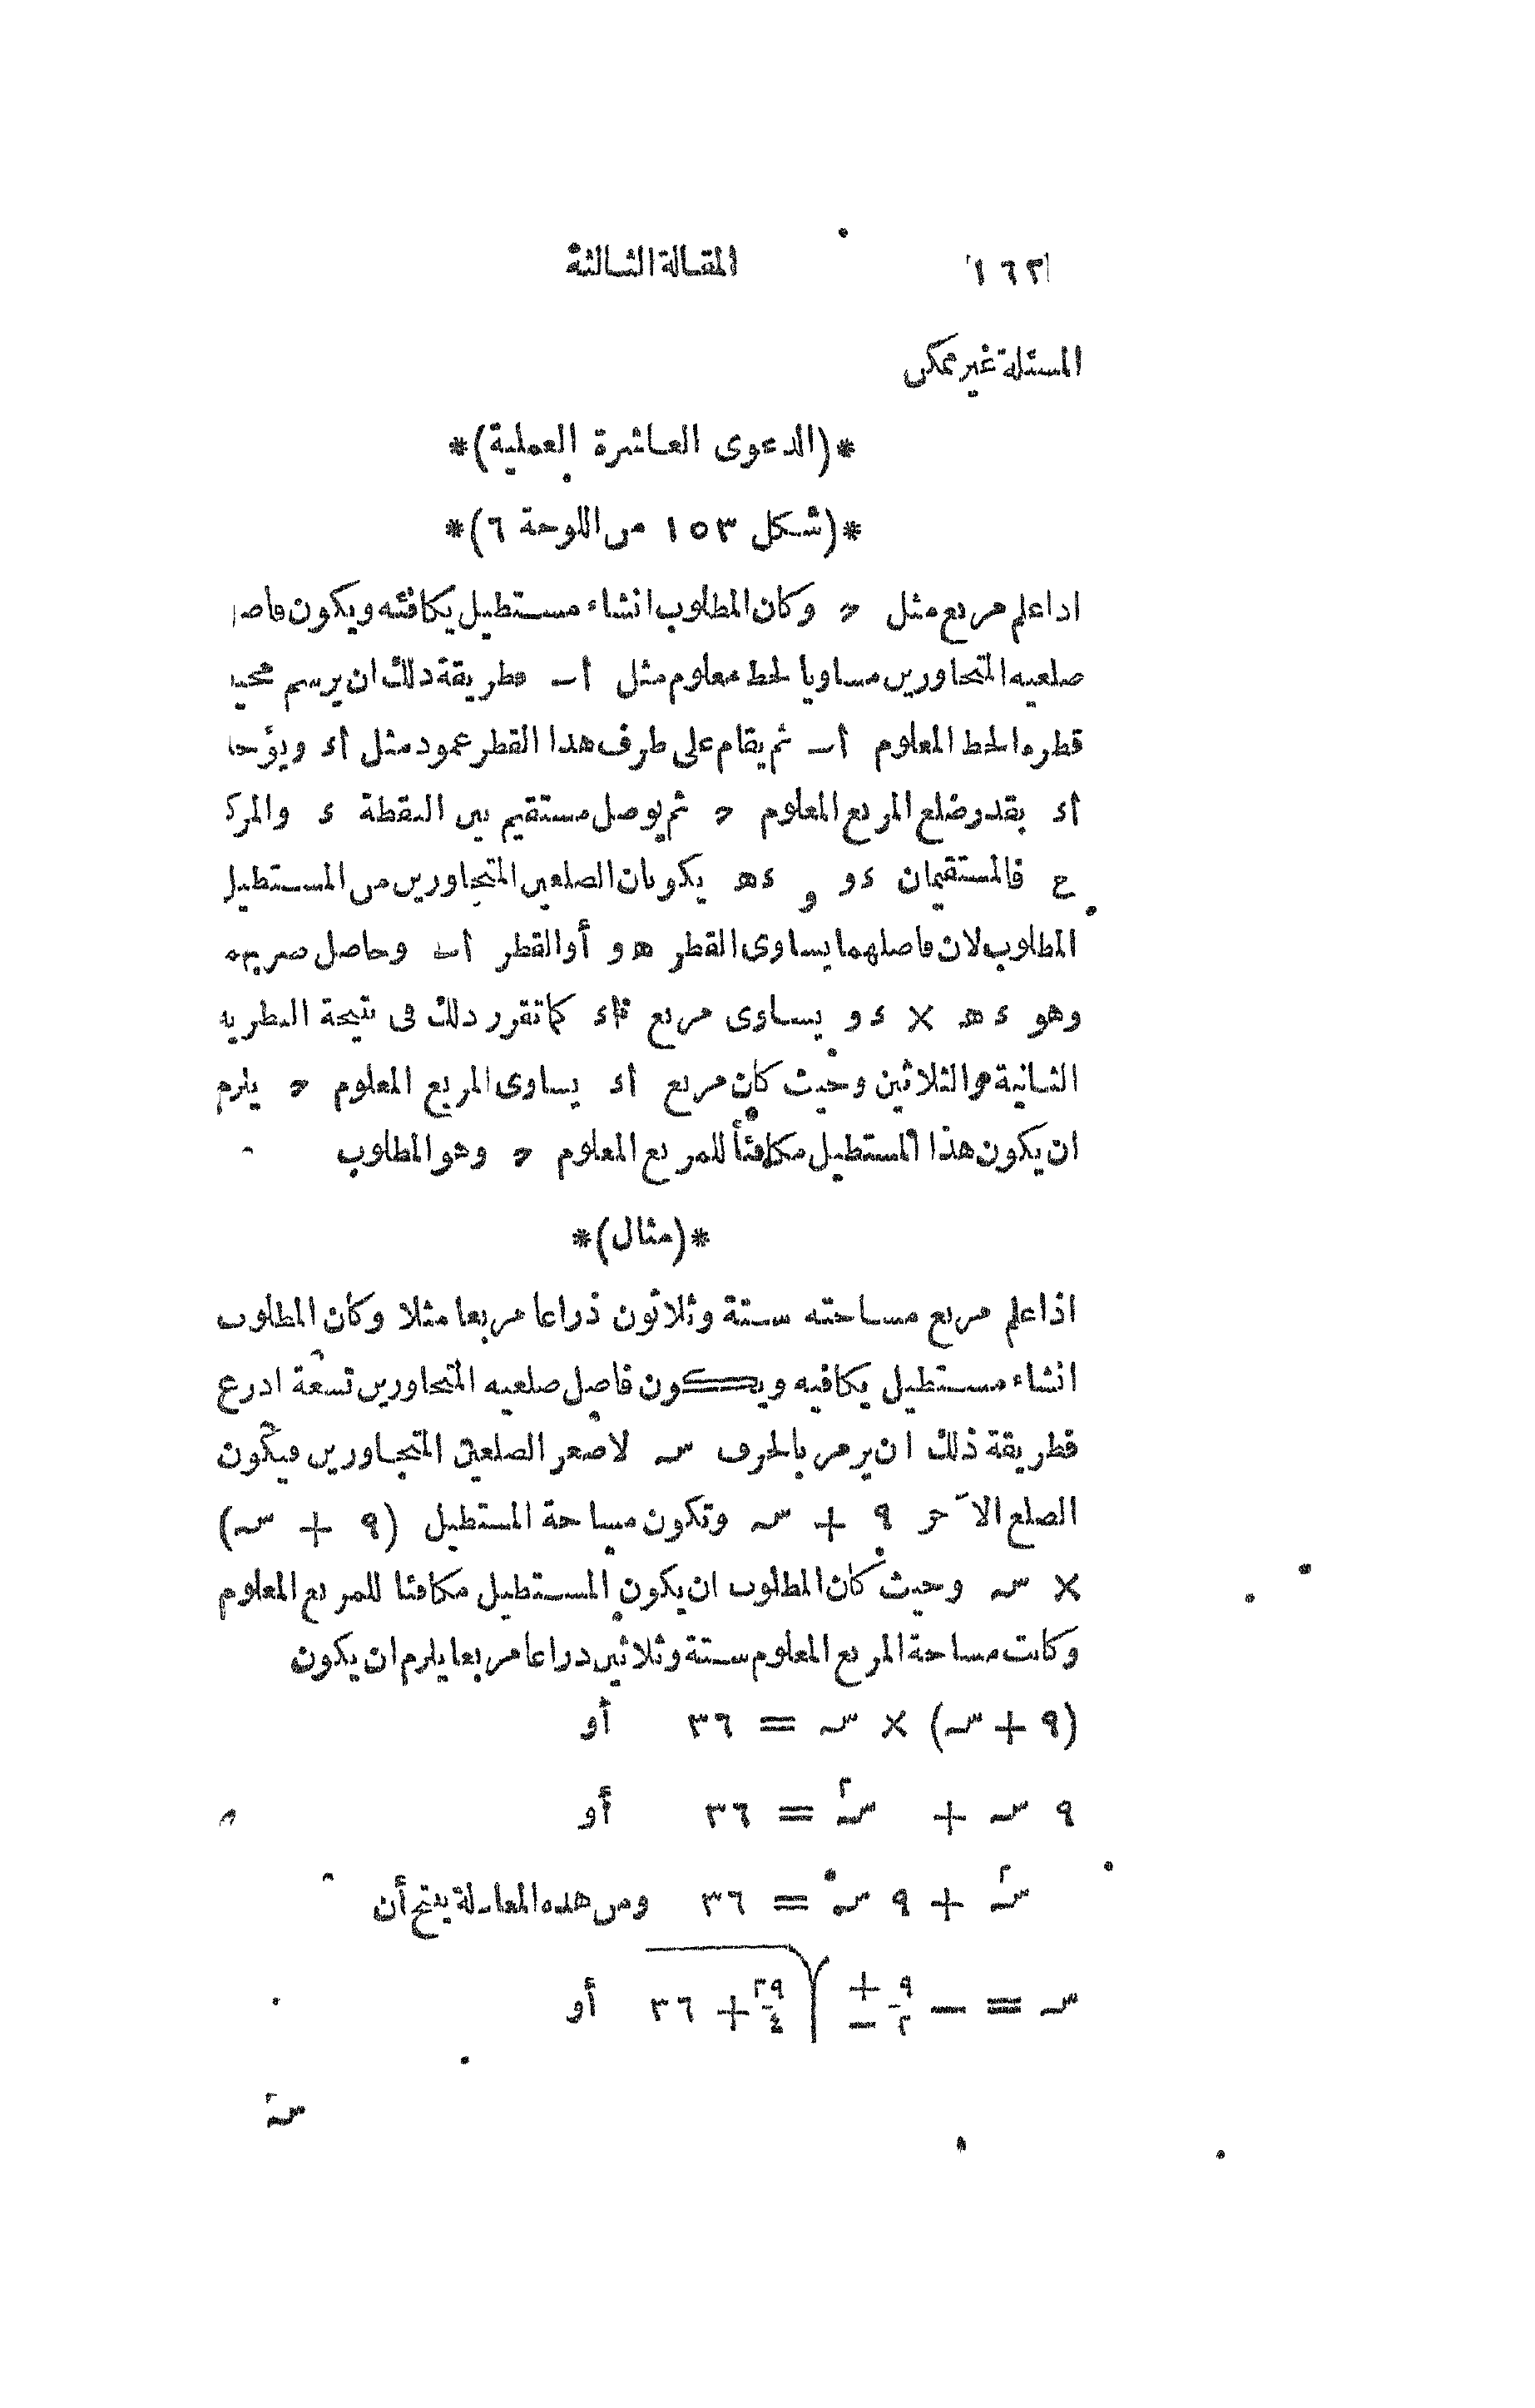 ١٦٢ المقالة الثالثة
المسئلة غير ممكن
*(الدعوى العاشرة العملية)*
*(شكل ١٥٣ من اللوحة ٦)*
اذا علم مربع مثل ح وكان المطلوب انشاء مستطيل يكافئه ويكون فاصل
ضلعيه المتجاورين مساويا لخط معلوم مثل أب فطريقة ذلك ان يرسم محيط
قطره الخط المعلوم أب ثم يقام على طرف هذا القطر عمود مثل أء ويؤخذ
أء بقدر ضلع المربع المعلوم ح ثم يوصل مستقيم بين النقطة ء والمركز
ع فالمستقيمان ءو و ءه يكونان الضلعين المتجاورين من المستطيل
المطلوب لان فاصلهما يساوى القطر هو أوالقطر أب وحاصل ضربهما
وهو ءه × ءو يساوى مربع أء كما تقرر ذلك فى نتيجة النظرية
الثانية والثلاثين وحيث كان مربع أء يساوى المربع المعلوم ح يلزم
ان يكون هذا المستطيل مكافئاً للمربع المعلوم ح وهو المطلوب
*(مثال)*
اذا علم مربع مساحته ستة وثلاثون ذراعا مربعا مثلا وكان المطلوب
انشاء مستطيل يكافيه ويكون فاصل ضلعيه المتجاورين تسعة اذرع
فطريقة ذلك ان يرمز بالحرف سـ لاصغر الضلعين المتجاورين فيكون
الضلع الآخر ٩ + سـ وتكون مساحة المستطيل (٩ + سـ)
× سـ وحيث كان المطلوب ان يكون المستطيل مكافئا للمربع المعلوم
وكانت مساحة المربع المعلوم ستة وثلاثين ذراعا مربعا يلزم ان يكون
(٩ + سـ) × سـ = ٣٦ أو
٩ سـ + سـ٢ = ٣٦ أو
سـ٢ + ٩ سـ = ٣٦ ومن هذه المعادلة ينتج أن
سـ = − ٩/٢ ± √(٩٢/٤ + ٣٦) أو
سـ